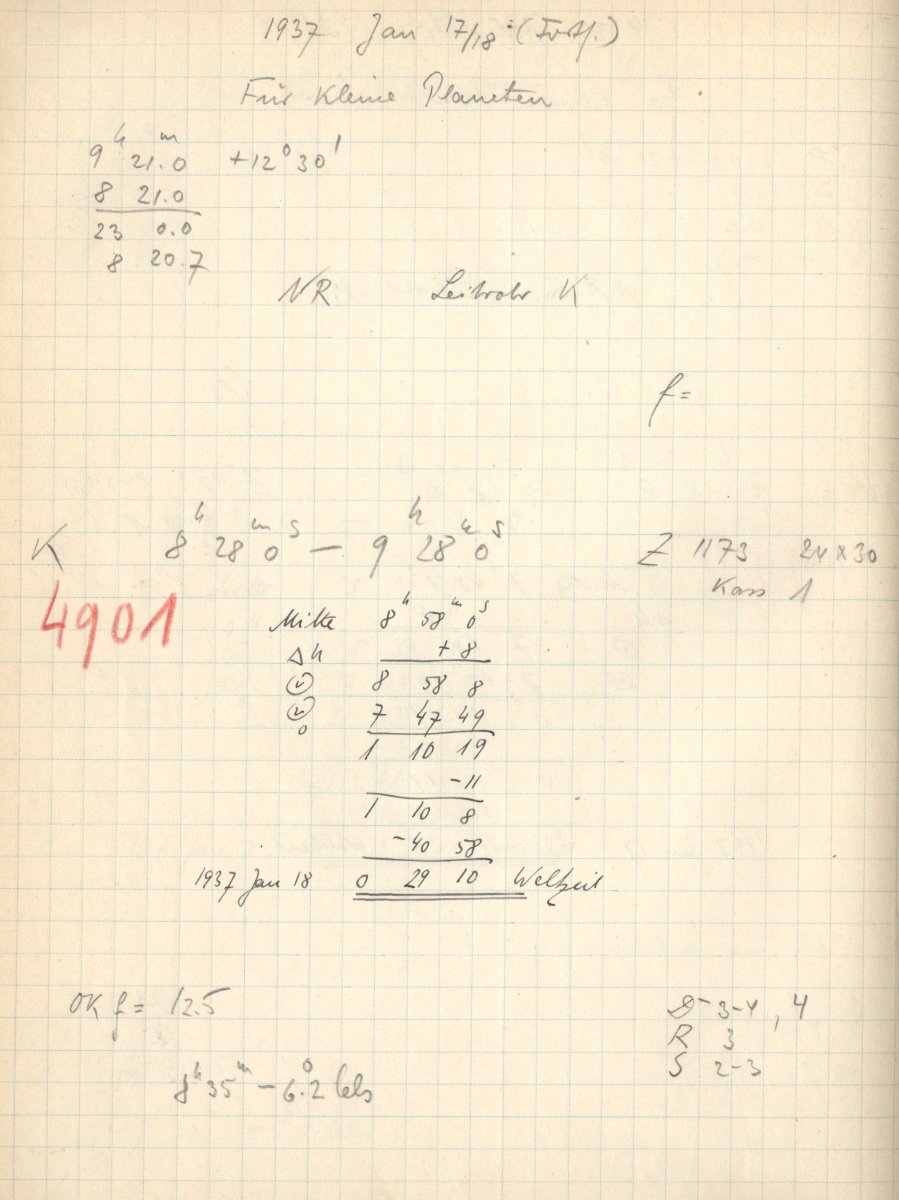 1937 Jan 17/18 (Forts.)
Für Kleine Planeten
9ʰ 21.0ᵐ +12° 30'
8 21.0
23 0.0
8 20.7
NR Leitrohr K
f =
K 8ʰ 28ᵐ 0ˢ — 9ʰ 28ᵐ 0ˢ Z 1173 24 x 30
Kass 1
4901
Mitte 8ʰ 58ᵐ 0ˢ
Δu + 8
8 58 8
7 47 49
0
1 10 19
- 11
1 10 8
- 40 58
1937 Jan 18 0 29 10 Weltzeit
OK f = 12.5
D 3-4, 4
R 3
S 2-3
8ʰ 35ᵐ - 6.2° Cels